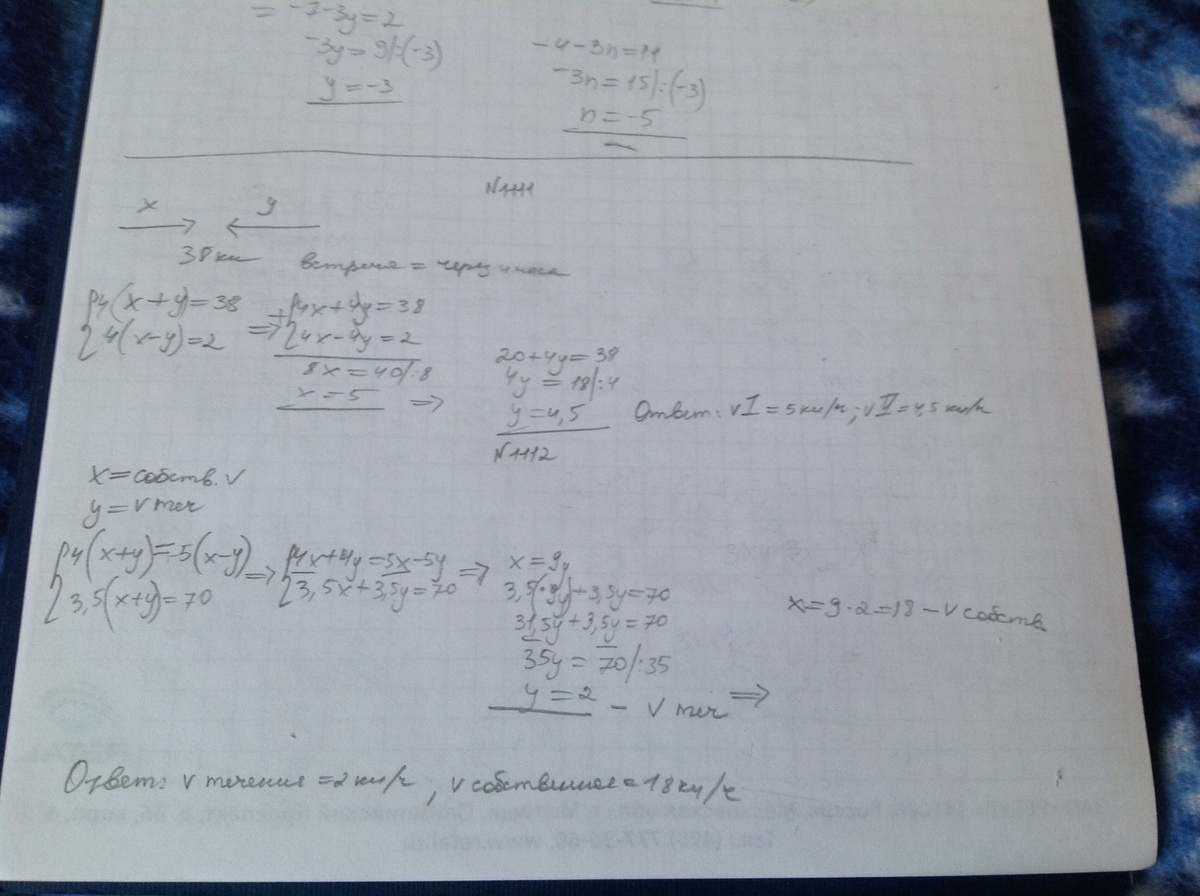 = -7-3y=2
-3y=9/:(-3)
y=-3
-4-3n=11
-3n=15/:(-3)
n=-5
N1111
x y
38км встреча = через 4 часа
{4(x+y)=38
{4(x-y)=2 =>
+{4x+4y=38
{4x-4y=2
8x=40/:8
x=5 =>
20+4y=38
4y=18/:4
y=4,5
Ответ: vI=5км/ч; vII=4,5км/ч
N1112
x=собств. v
y=v теч
{4(x+y)=5(x-y)
{3,5(x+y)=70 =>
{4x+4y=5x-5y
{3,5x+3,5y=70 =>
x=9y
3,5(·9y)+3,5y=70
31,5y+3,5y=70
35y=70/:35
y=2 - v теч =>
x=9·2=18-v собств.
Ответ: v течения =2км/ч, v собственная =18км/ч